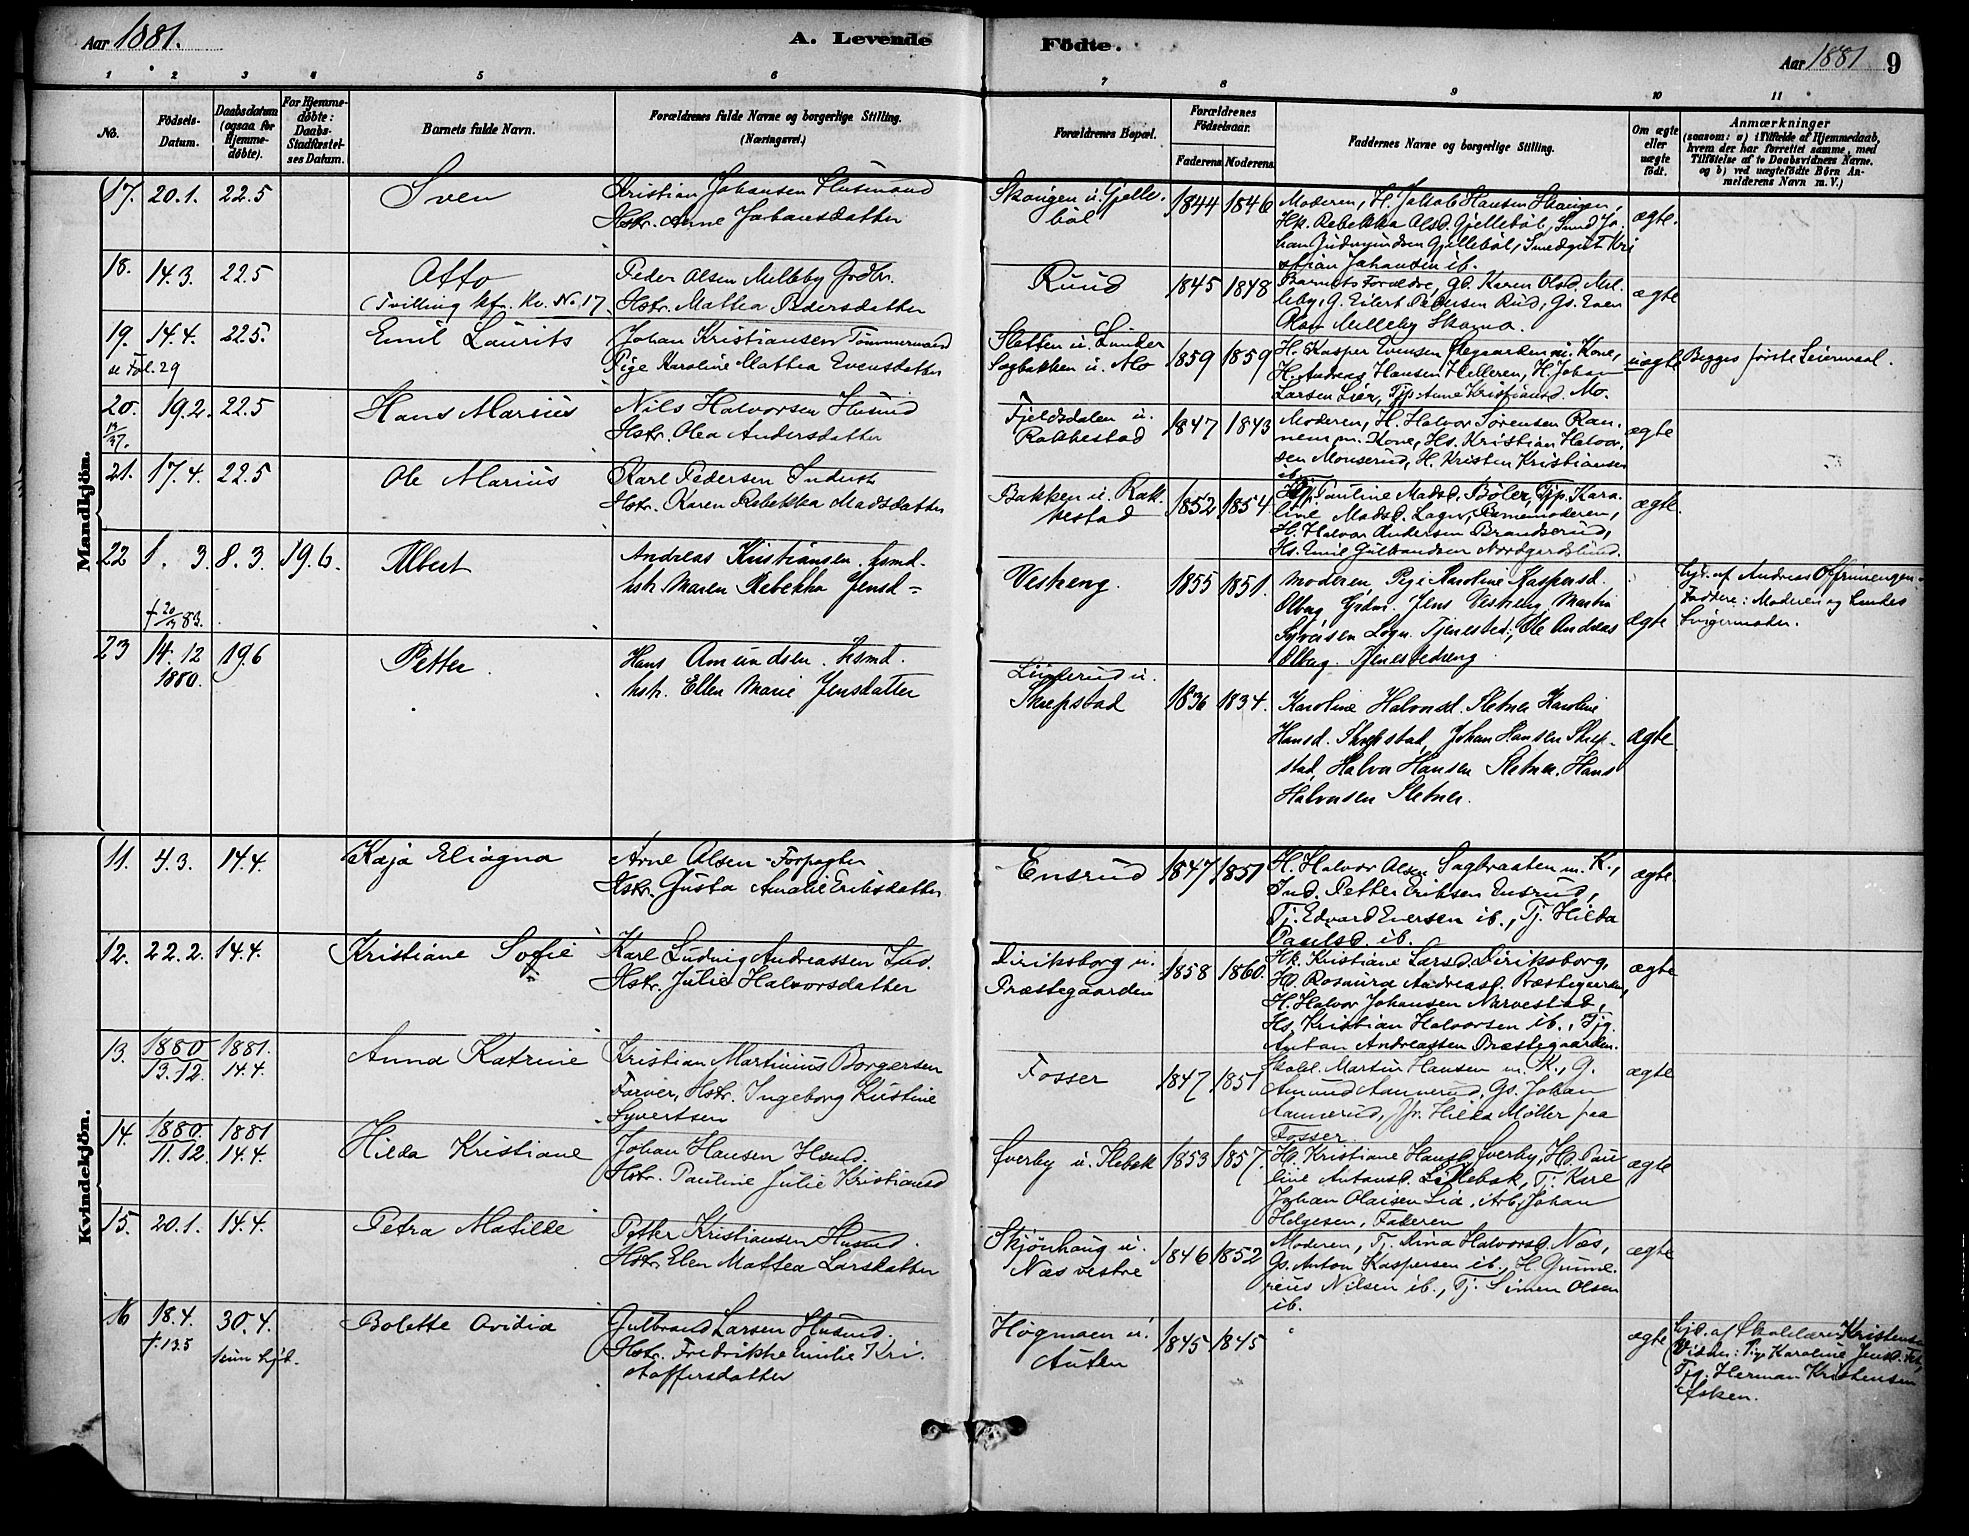 Aar 1881.
A. Levende
Födte.
Aar 1881
9
1 2 3 4 5 6 7 8 9 10 11
No.
Födsels-
Datum.
Daabsdatum
(ogsaa for
Hjemme-
døbte).
For Hjemme-
døbte:
Daabs-
Stadfæstel-
ses Datum.
Barnets fulde Navn.
Forældrenes fulde Navne og borgerlige Stilling.
(Næringsvei.)
Forældrenes Bopæl.
Forældrenes
Födselsaar.
Faderens Moderens
Faddernes Navne og borgerlige Stilling.
Om ægte
eller
uægte
födt.
Anmærkninger
(saasom: a) i Tilfælde af Hjemmedaab,
hvem der har forrettet samme, med
Tilföielse af to Daabsvidners Navne,
og b) ved uægtefödte Börn An-
melderens Navn m. V.)
Mandkjön.
17. 20.1. 22.5
Sven
Kristian Johansen Husmand
Hstr. Anne Johansdatter
Skougen u. Gjelle-
böl
1844 1846
Moderen, H. Jakob Hansen Skougen,
Hk. Rebekka Olsd. Gjellebøl, Smed Jo-
han Gudmundsen Gjellebøl, Smedgut Kri
stian Johansen ib.
ægte.
18. 14.3. 22.5
Otto
(Tvilling kfr. Kv. No 17.
Peder Olsen Melleby Grdbr.
Hstr. Mattea Pedersdatter
Ruud
1845 1848
Barnets Forældre, Gd. Karen Olsd. Mel-
leby, G. Eilert Pedersen Rud, Gs. Even
Olsen Melleby Skoma.
ægte
19. 14.4. 22.5.
Fol. 29
Emil Laurits
Johan Kristiansen Tömmermand
Pige Karoline Mattea Evensdatter
Sletten u. Lunder
Sagbakken u. Mo
1859 1859
H. Kasper Evensen Stegaarden m. Kone,
H. Andreas Hansen Helleren, H. Johan
Larsen Lier, Tjp. Anne Kristiansd. Mo.
uægte
Begges første Leiermaal.
20. 19.2. 22.5
Hans Marius
Nils Halvorsen Husmd
Hstr. Olea Andersdatter
Fjeldsdalen u.
Rakkestad
1847 1843
Moderen, H. Halvor Sørensen Ran-
nem m. Kone, Hs. Kristian Halvor
sen Monserud, H. Kristen Kristiansen
ib.
ægte
21. 17.4. 22.5
Ole Marius
Karl Pedersen Inderst
Hstr. Karen Rebekka Madsdatter
Bakken u. Rak-
kestad
1852 1854
Pauline Madsd. Bøler, Tjp. Karo-
line Madsd. Barnemoderen,
H. Halvor Andersen Brandserud,
Hs. Emil Gulbrandsen Nordgardslund.
ægte.
22 1. 3. 8.3. 19.6.
† 20/3 83.
Albert
Andreas Kristiansen. hsmd.
hstr. Maren Rebekka Jensd-
Vestreng.
1855 1851.
Moderen, Pige Karoline Kaspersd.
Olberg, Grdm. Jens Vestreng, Martin
Syversen Logn. Tjenested; Ole Andreas
Olberg. Tjenestedreng.
ægte
hjd. af Andreas
Faddere: Moderen og hendes
Svigermoder.
23 14.12 1880. 19.6
Petter.
Hans Amundsen. hsmd.
hstr. Ellen Marie Jensdatter
Linderud u.
Skepstad
1836 1834.
Karoline Halvorsd. Sletner Karoline
Hansd. Skepstad, Johan Hansen Skep-
stad, Halvor Hansen Sletner. Hans
Halvorsen Sletner.
ægte
Kvindekjön.
11. 4.3. 14.4.
Kaja Eliagna
Arne Olsen - Forpagter
Hstr. Gusta Amalie Eriksdatter
Ensrud
1847 1851
H. Halvor Olsen Sagbraaten m. K.,
Ind. Petter Eriksen Ensrud,
Tj. Edvard Eversen ib., Tj. Hilda
Paulsd. ib.
ægte.
12. 22.2. 14.4.
Kristiane Sofie
Karl Ludvig Andreassen Ind.
Hstr. Julie Halvorsdatter
Diriksborg u.
Præstegaarden
1858 1860.
Hk. Kristiane Larsd. Diriksborg,
Hd. Rosaura Andreasd. Præstegaarden,
H. Halvor Johansen Narvestad,
Hs. Kristian Halvorsen ib., Tjg.
Anton Andreassen Præstegaarden.
ægte
13. 1880 13.12. 1881. 14.4.
Anna Katrine
Kristian Martinius Borgersen
Farver, Hstr. Ingeborg Kristine
Syvertsen
Fosser
1847 1851
Skoll. Martin Hansen m. K., G.
Amund Aannerud, Gs. Johan
Aannerud, Jfr. Hilda Møller paa
Fosser.
ægte
14. 1880. 11.12. 1881 14.4.
Hilda Kristiane
Johan Hansen Hsmd.
Hstr. Pauline Julie Kristiansd
Sverby u. Slebak
1853 1857.
Hd. Kristiane Hansd. Sverby, Hd. Pau-
line Antonsd. Lillebak, Tj. Karl
Johan Olaisen Lia, Arb. Johan
Helgesen, Faderen
ægte
15. 20.1. 14.4.
Petra Matilde
Petter Kristiansen Husmd.
Hstr. Elen Mattea Larsdatter
Skjönhaug u.
Næs vestre
1846 1852
Moderen, Tj. Dina Halvorsd. Næs,
Gs. Anton Kaspersen ib., H. Gunne-
rius Nilsen ib., Tj. Simen Olsen
ib.
ægte
16 18.4. † 13.5 30.4. kun hjd.
Bolette Ovidia
Gulbrand Larsen Husmd.
Hstr. Fredrikke Emilie Kri-
stoffersdatter
Høgmoen u.
Auten
1845 1845
ægte
hjd. af Skolelærer Kristensen
Vidner: Pige Karoline Jensd.
Tjg. Herman Kristensen
Asken.